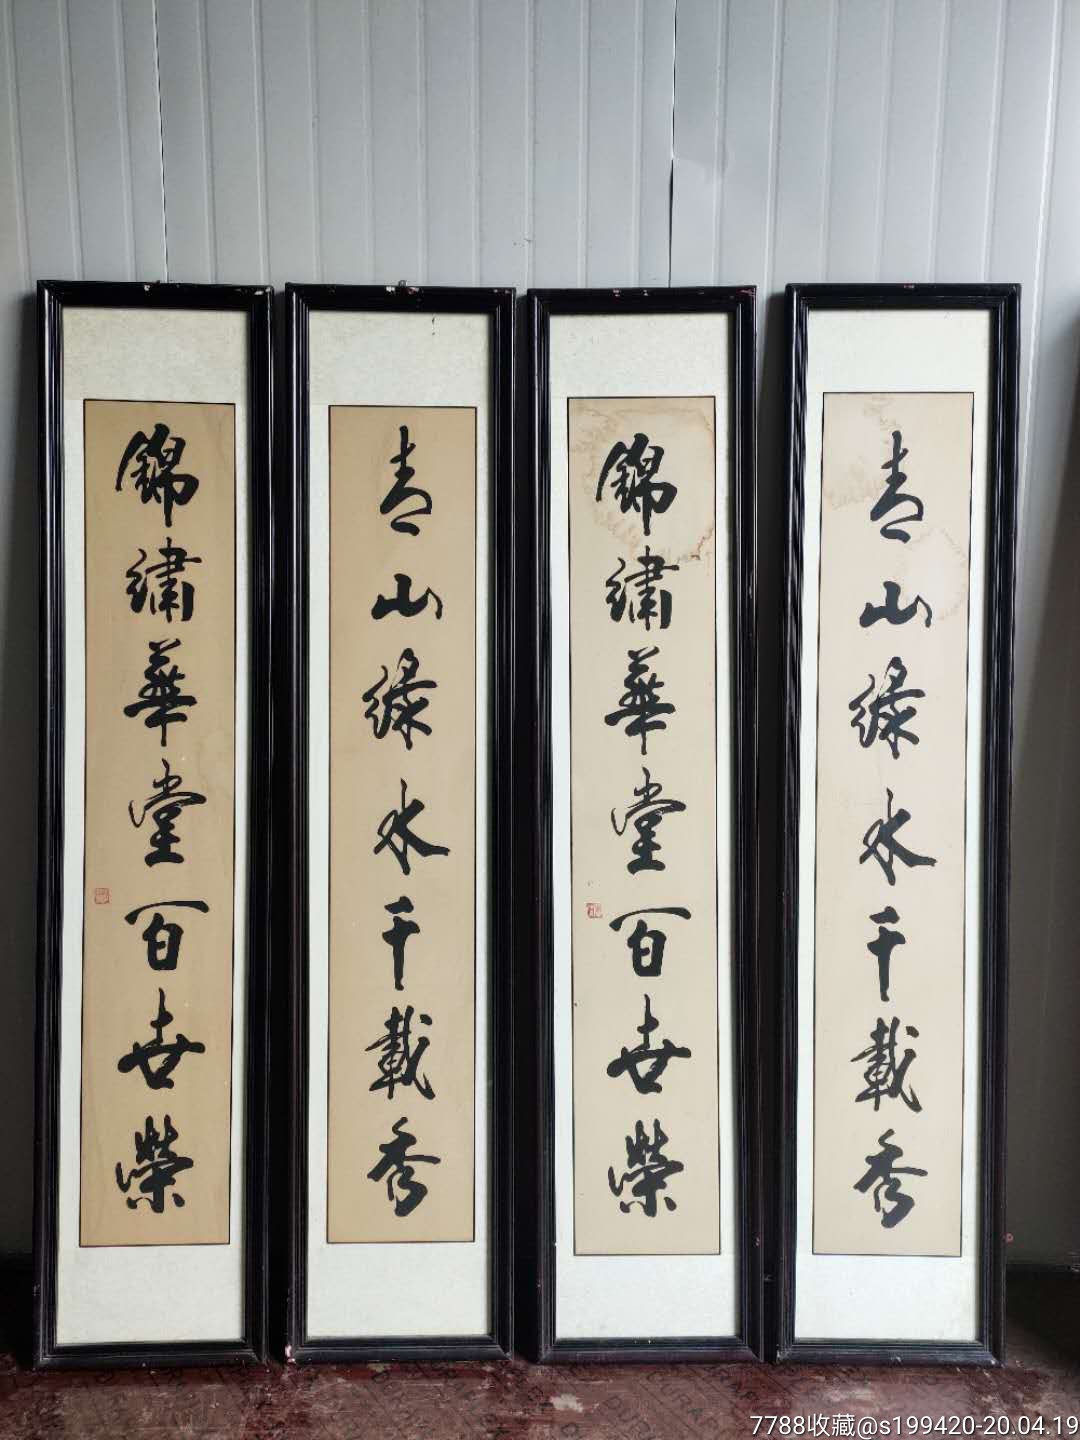 青山緑水千載秀
錦繡華堂百世榮
青山緑水千載秀
錦繡華堂百世榮
7788收藏@s199420-20.04.19